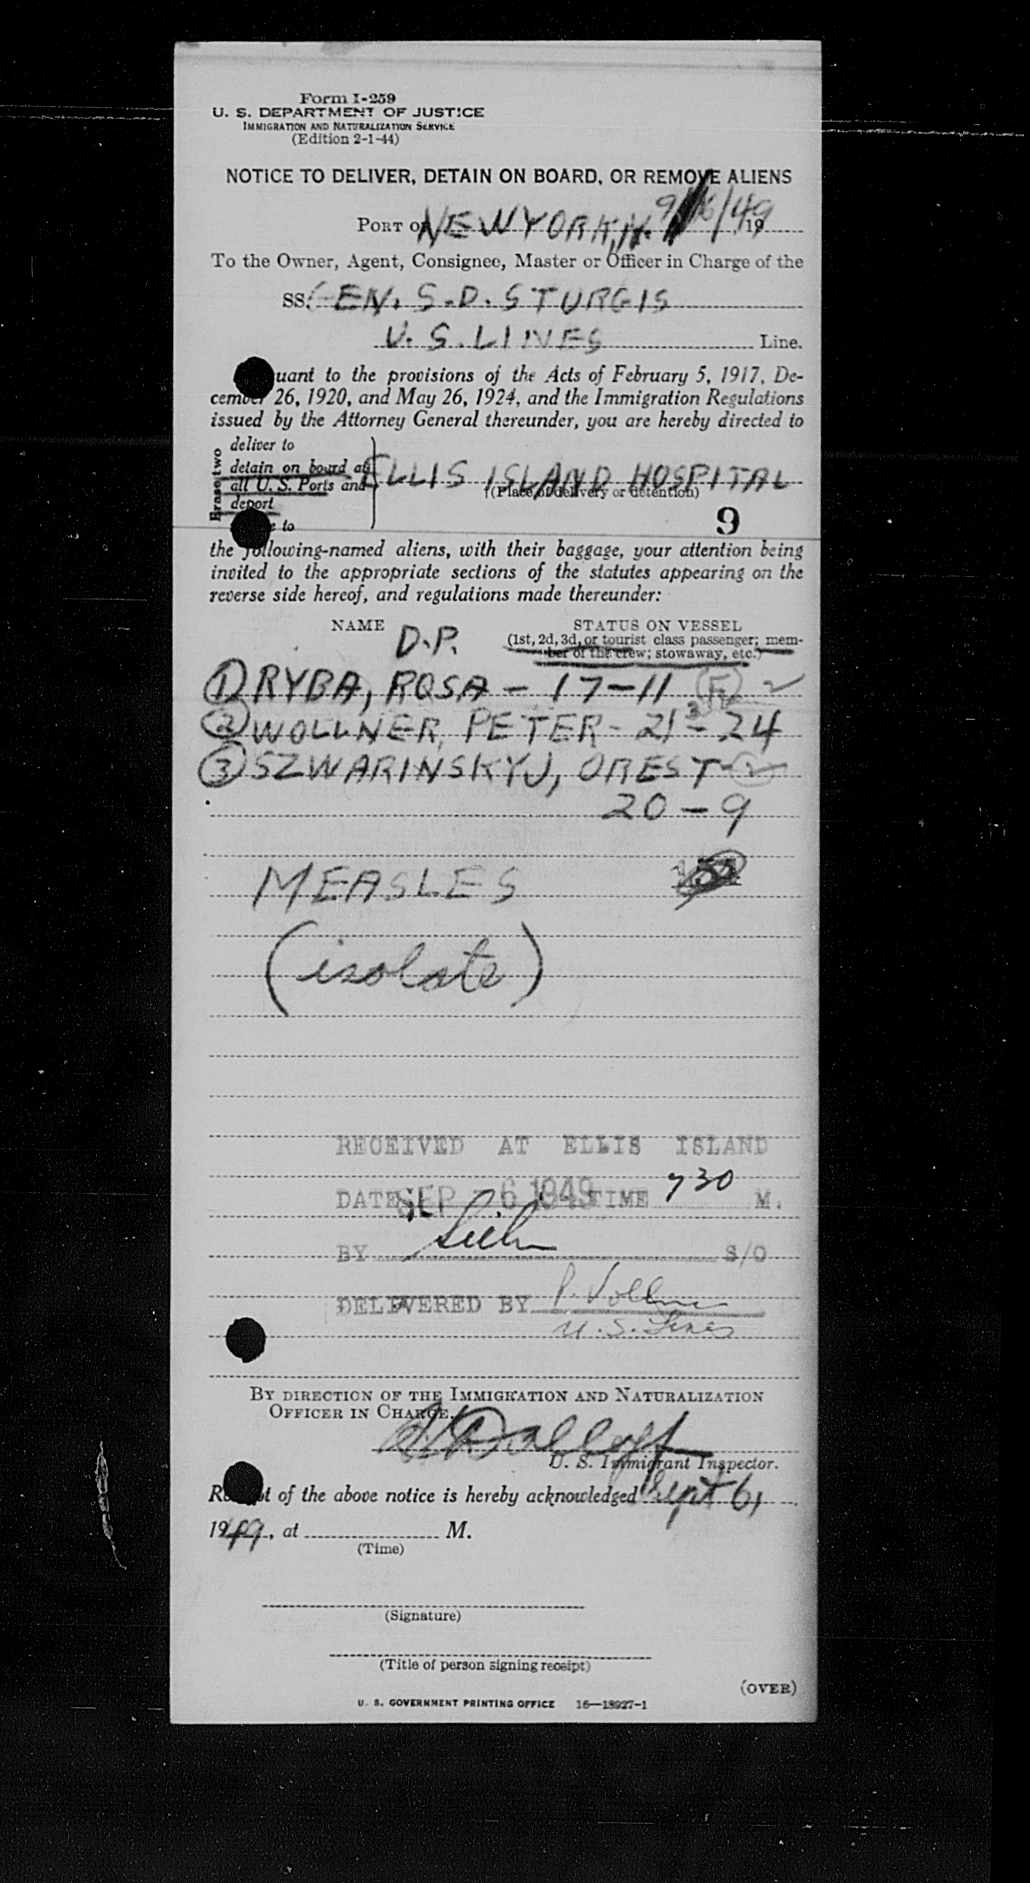 Form I-259
U. S. DEPARTMENT OF JUSTICE
IMMIGRATION AND NATURALIZATION SERVICE
(Edition 2-1-44)
NOTICE TO DELIVER, DETAIN ON BOARD, OR REMOVE ALIENS
PORT OF NEW YORK, N. 9/ /49 19
To the Owner, Agent, Consignee, Master or Officer in Charge of the
SS. GEN. S.D. STURGIS
U. S. LINES Line.
uant to the provisions of the Acts of February 5, 1917, De-
cember 26, 1920, and May 26, 1924, and the Immigration Regulations
issued by the Attorney General thereunder, you are hereby directed to
Erase two
deliver to
detain on board at
all U. S. Ports and
deport
to
ELLIS ISLAND HOSPITAL
(Place of delivery or detention)
9
the following-named aliens, with their baggage, your attention being
invited to the appropriate sections of the statutes appearing on the
reverse side hereof, and regulations made thereunder:
NAME D.P. STATUS ON VESSEL
(1st, 2d, 3d, or tourist class passenger; mem-
ber of the crew; stowaway, etc.)
1 RYBA, ROSA - 17-11
2 WOLLNER, PETER - 21-24
3 SZWARINSKYJ, OREST
20-9
MEASLES
(isolate)
RECEIVED AT ELLIS ISLAND
DATE SEP 6 1949 TIME 730 M.
BY S/O
DELIVERED BY P. Vollmer
U. S. Lines
BY DIRECTION OF THE IMMIGRATION AND NATURALIZATION
OFFICER IN CHARGE.
U. S. Immigrant Inspector.
Receipt of the above notice is hereby acknowledged Sept 6,
1949, at M.
(Time)
(Signature)
(Title of person signing receipt)
(OVER)
U. S. GOVERNMENT PRINTING OFFICE 16—18927-1